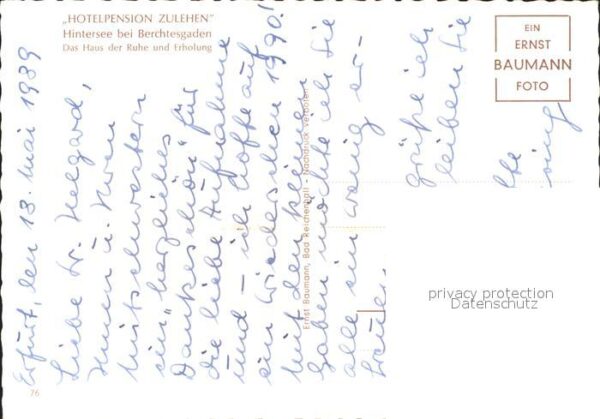 „HOTELPENSION ZULEHEN"
Hintersee bei Berchtesgaden
Das Haus der Ruhe und Erholung
EIN
ERNST
BAUMANN
FOTO
Erfurt, den 13. Mai 1989
Liebe Sr. Helgard,
Ihnen u. Ihren
Mitschwestern
ein „herzliches
Dankeschön" für
die liebe Aufnahme
und – ich hoffe auf
ein Wiedersehen 1990!
Mit den kleinen
Gaben möchte ich Sie
alle ein wenig er-
freuen.
grüße ich
leiben Sie
Ihre
Ernst Baumann, Bad Reichenhall - Nachdruck verboten!
76
privacy protection
Datenschutz